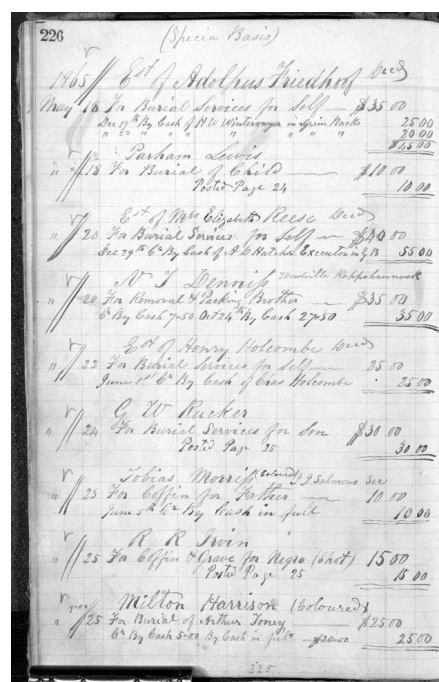 226
(Specia Basis)
1865 Est of Adolphus Friedhof Decd
May 16 For Burial Services for Self — $35 00
Dec 19th By Cash of H W in Green Backs 25 00
" " " " " " " " " 20 00
$45 00
Parham Lewis
" 18 For Burial of Child — $10 00
Posted Page 24 10 00
Est of Mrs Elizabeth Reese Decd
" 20 For Burial Services for Self — $40 00
Dec 29th Cr By Cash of A W Executor in G B 55 00
N J Denniss Woodville Rappahannock
" 20 For Removal & Packing Brother — $35 00
Cr By Cash 7=50 Oct 24th By Cash 27=50 35 00
Est of Henry Holcombe Decd
" 22 For Burial Services for Self — 25 00
June 1st Cr By Cash of Chas Holcombe 25 00
G W Rucker
" 24 For Burial Services for Son $30 00
Posted Page 25 30 00
Tobias Morriss (Coloured) J J Salmons
" 25 For Coffin for Father — 10 00
June 5th Cr By Cash in full 10 00
R R Irvin
" 25 For Coffin & Grave for Negro (Shot) 15 00
Posted Page 25 15 00
Milton Harrison (Coloured)
" 25 For Burial of Arthur Toney $25 00
Cr By Cash 5=00 By Cash in full — $20=00 25 00
225